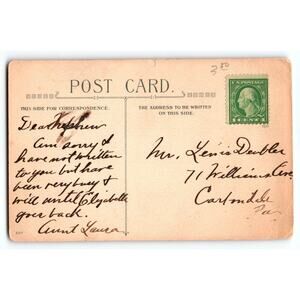 3.50
POST CARD.
THIS SIDE FOR CORRESPONDENCE.
THE ADDRESS TO BE WRITTEN
ON THIS SIDE.
1 CENT 1
Dear Nephew
Am sorry I
have not written
to you but have
been very busy &
will until Elizabeth
goes back.
Aunt Laura
Mr. Lewis Deubler
71 Williams Ave.
Carbondale
Pa